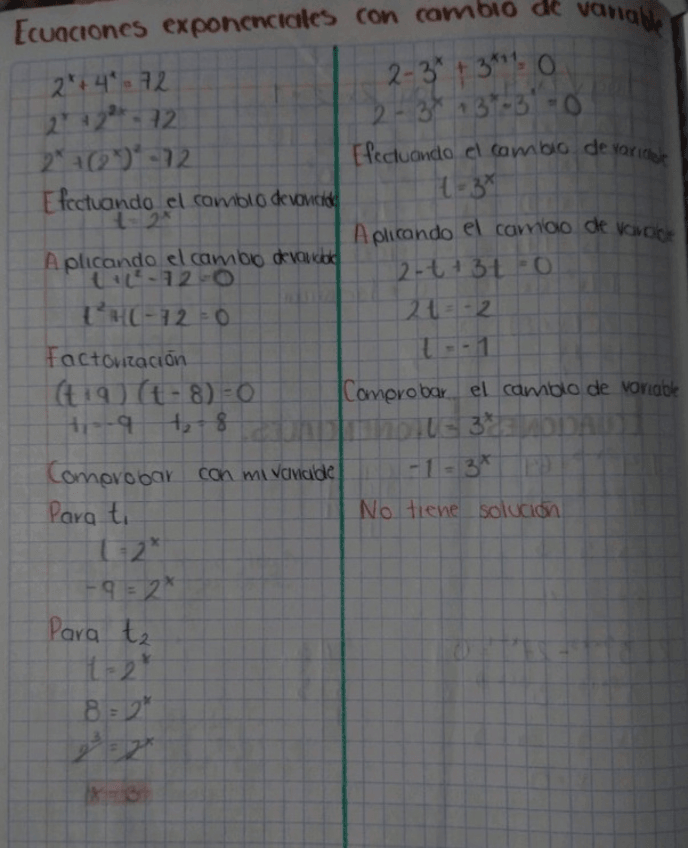 Ecuaciones exponenciales con cambio de variable
2ˣ + 4ˣ = 72
2ˣ + 2²ˣ = 72
2ˣ + (2ˣ)² = 72
Efectuando el cambio de variable
t = 2ˣ
Aplicando el cambio de variable
t + t² - 72 = 0
t² + t - 72 = 0
Factorización
(t + 9) (t - 8) = 0
t₁ = -9 t₂ = 8
Comprobar con mi variable
Para t₁
t = 2ˣ
-9 = 2ˣ
Para t₂
t = 2ˣ
8 = 2ˣ
2³ = 2ˣ
x = 3
2 - 3ˣ + 3ˣ⁺¹ = 0
2 - 3ˣ + 3ˣ - 3¹ = 0
Efectuando el cambio de variable
t = 3ˣ
Aplicando el cambio de variable
2 - t + 3t = 0
2t = -2
t = -1
Comprobar el cambio de variable
t = 3ˣ
-1 = 3ˣ
No tiene solución